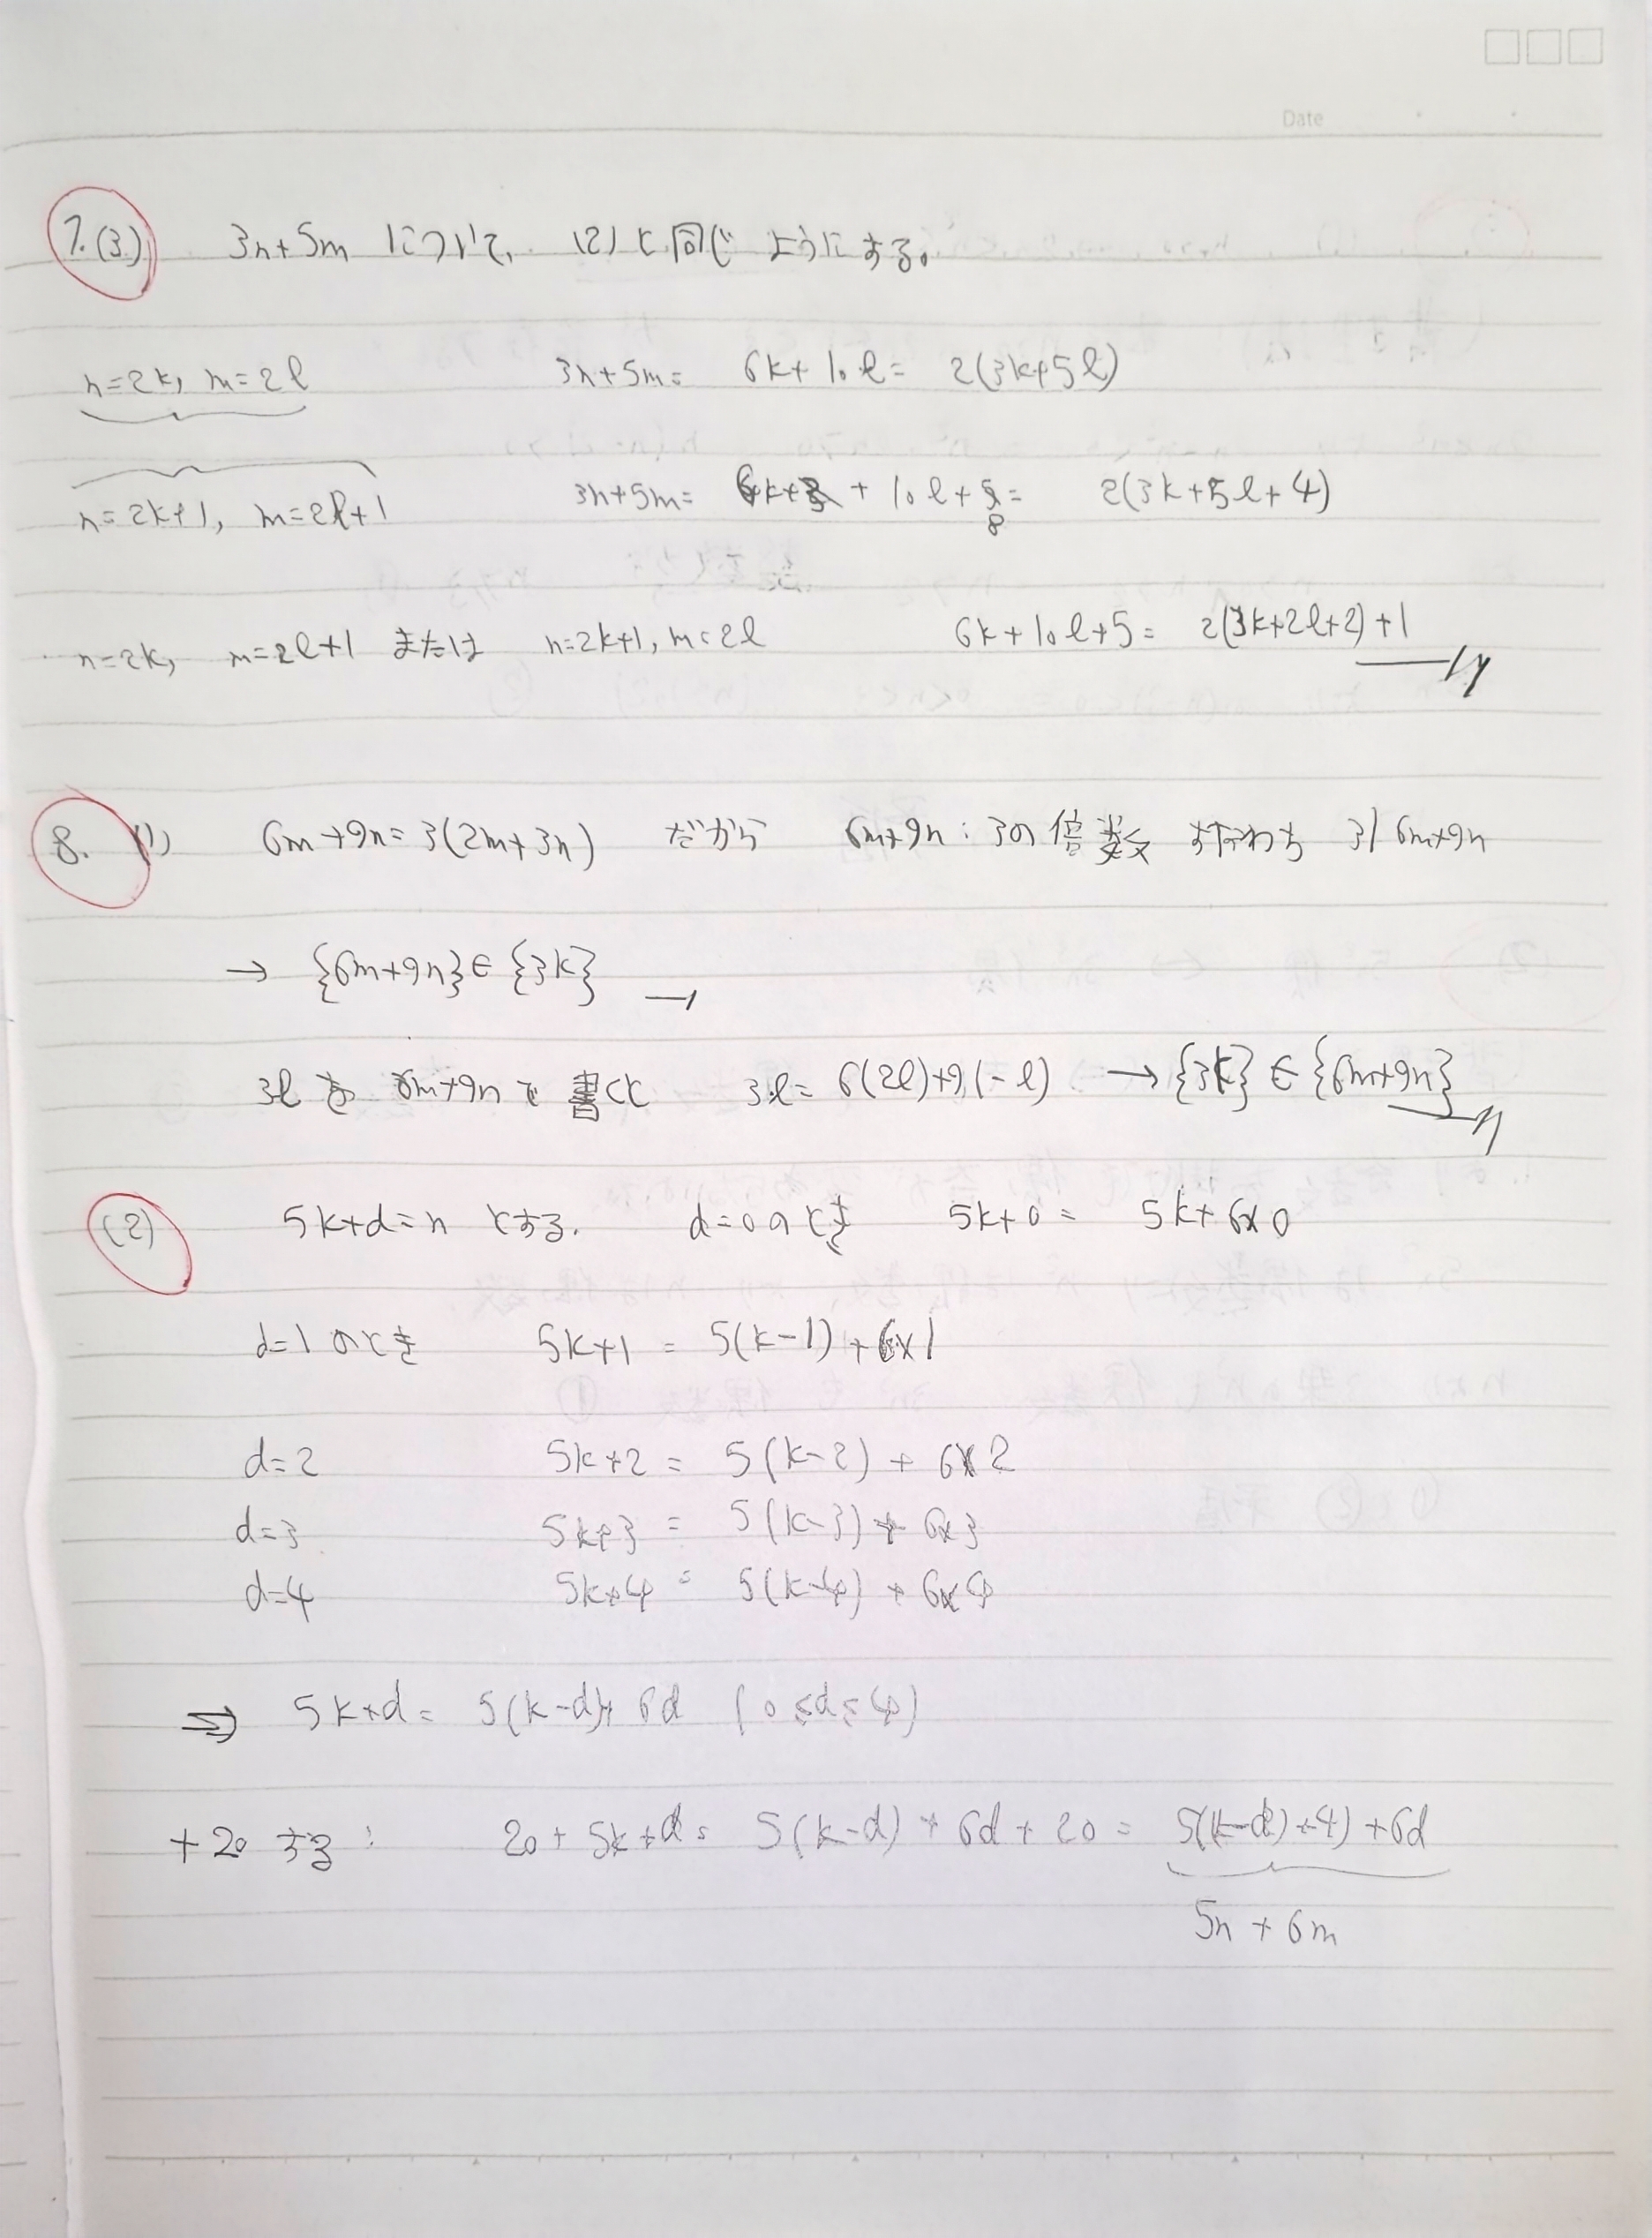 Date
7.(3) 3n+5m について、 (2)と同じようにする。
n=2k, m=2l 3n+5m= 6k+10l= 2(3k+5l)
n=2k+1, m=2l+1 3n+5m= 6k+ + 10l+8= 2(3k+5l+4)
n=2k, m=2l+1 または n=2k+1, m=2l 6k+10l+5= 2(3k+2l+2)+1
8. (1) 6m+9n=3(2m+3n) だから 6m+9n:3の倍数 すなわち 3|6m+9n
→ {6m+9n}∈{3k}
3l を 6m+9n で書くと 3l= 6(2l)+9(-l) → {3k}∈{6m+9n}
(2) 5k+d=n とする. d=0のとき 5k+0= 5k+6×0
d=1のとき 5k+1 = 5(k-1)+6×1
d=2 5k+2 = 5(k-2)+6×2
d=3 5k+3 = 5(k-3)+6×3
d=4 5k+4 = 5(k-4)+6×4
⇒ 5k+d= 5(k-d)+6d (0≤d≤4)
+20する: 20+5k+d= 5(k-d)+6d+20= 5(k-d)+4)+6d
5n+6m